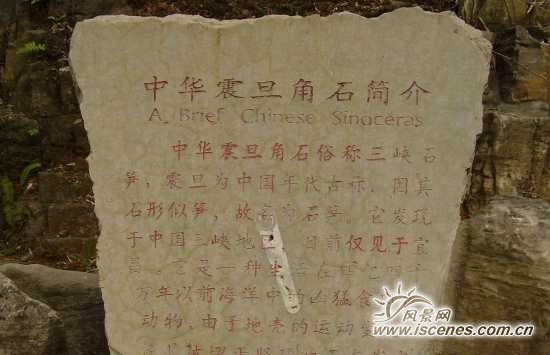 中华震旦角石简介
A Brief Chinese Sinoceras
中华震旦角石俗称三峡石
笋，震旦为中国年代古称，因其
石形似笋，故 为石笋。它发现
于中国三峡地区，目前仅见于宜
昌。它是一种生
万年以前海洋中 凶猛食
动物。由于地壳的运动
风景网
www.iscenes.com.cn